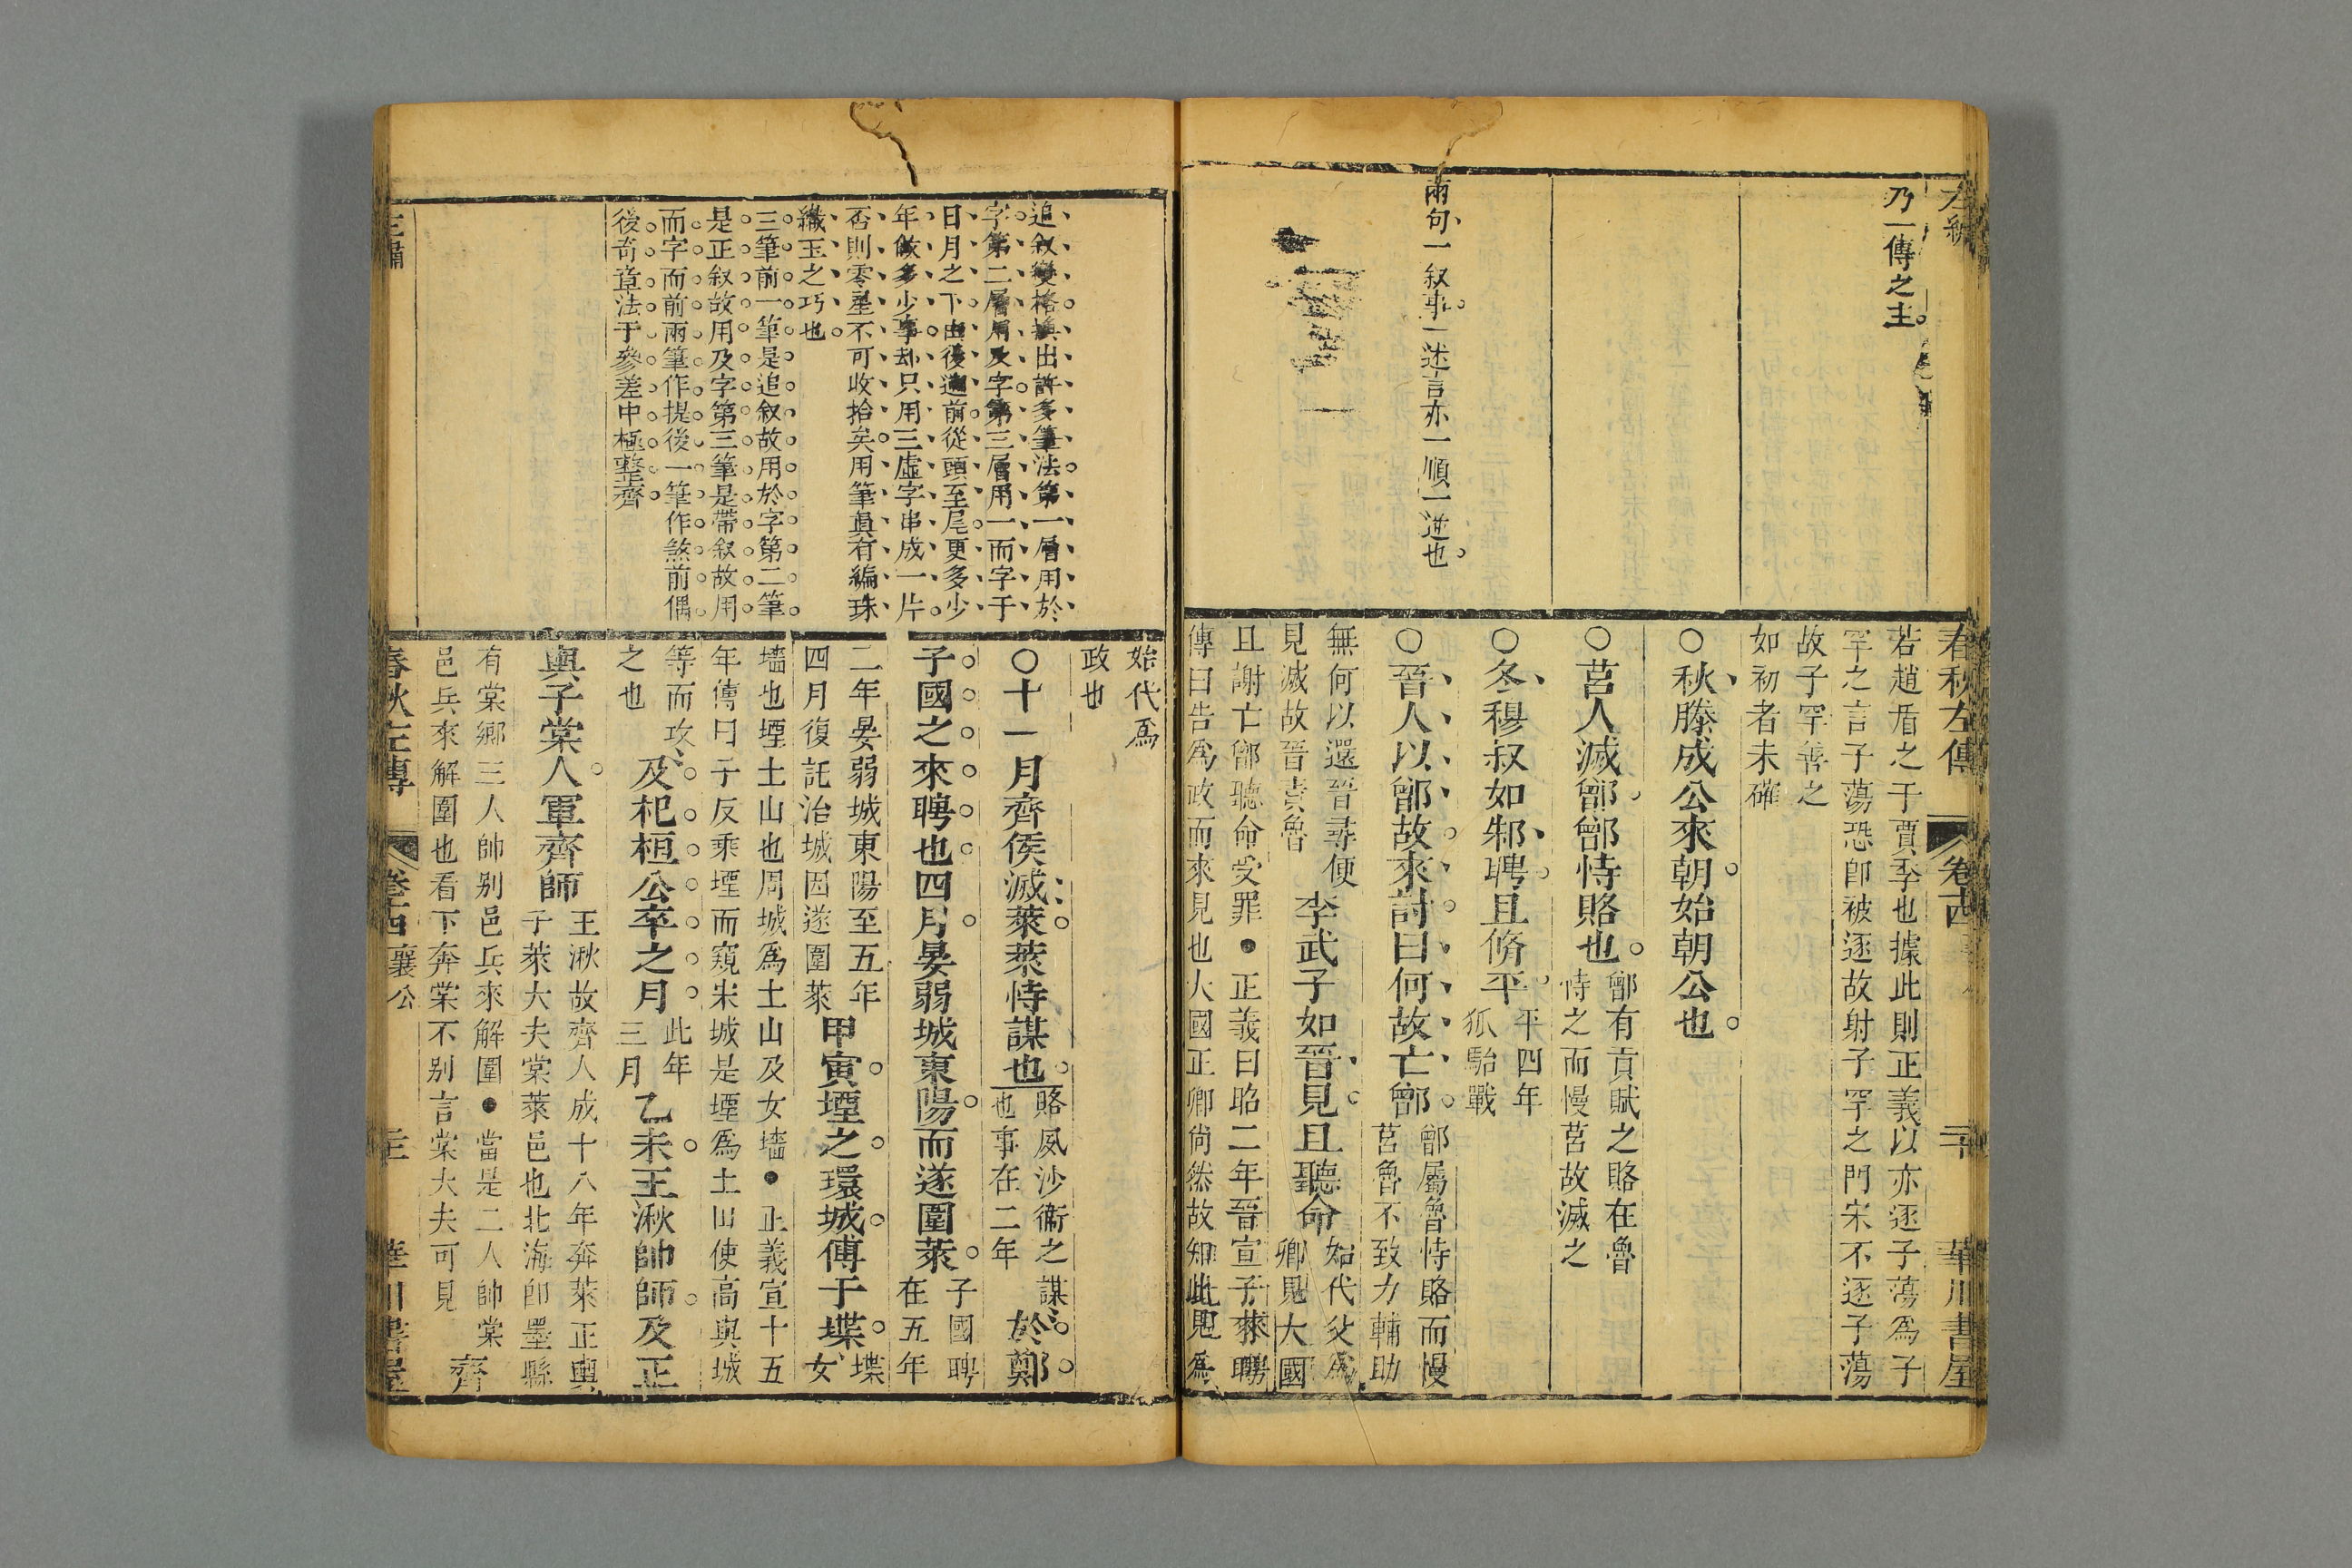 乃一傳之主
兩句一叙事一述言亦一順一逆也
春秋左傳 卷十四 二十 華川書屋
若趙盾之于賈季也據此則正義以亦逐子蕩為子
罕之言子蕩恐卽被逐故射子罕之門宋不逐子蕩
故子罕善之
如初者未確
○秋滕成公來朝始朝公也
○莒人滅鄫鄫恃賂也鄫有貢賦之賂在魯
恃之而慢莒故滅之
○冬穆叔如邾聘且脩平平四年
狐駘戰
○晉人以鄫故來討曰何故亡鄫鄫屬魯恃賂而慢
莒魯不致力輔助
無何以還晉尋便
見滅故晉責魯
季武子如晉見且聽命始代父為
卿見大國
且謝亡鄫聽命受罪●正義曰昭二年晉宣子來聘
傳曰告為政而來見也大國正卿尚然故知此見為
始代爲
政也
追叙變格換出許多筆法第一層用於
字第二層用及字第三層用一而字于
日月之下由後遡前從頭至尾更多少
年做多少事却只用三虛字串成一片
否則零星不可收拾矣用筆眞有編珠
織玉之巧也
三筆前一筆是追叙故用於字第二筆
是正叙故用及字第三筆是帶叙故用
而字而前兩筆作提後一筆作煞前偶
後奇章法于參差中極整齊
○十一月齊侯滅萊萊恃謀也賂夙沙衛之謀
也事在二年
於鄭
子國之來聘也四月晏弱城東陽而遂圍萊子國聘
在五年
二年晏弱城東陽至五年
四月復託治城因遂圍萊
甲寅堙之環城傅于堞堞
女
墻也堙土山也周城爲土山及女墻●正義宣十五
年傳曰子反乘堙而窺宋城是堙爲土山使高與城
等而攻
之也
及杞桓公卒之月此年
三月
乙未王湫帥師及正
輿子棠人軍齊師王湫故齊人成十八年奔萊正輿
子萊大夫棠萊邑也北海卽墨縣
有棠鄉三人帥别邑兵來解圍●當是二人帥棠
邑兵來解圍也看下奔棠不别言棠大夫可見
齊
春秋左傳 卷十四 襄公